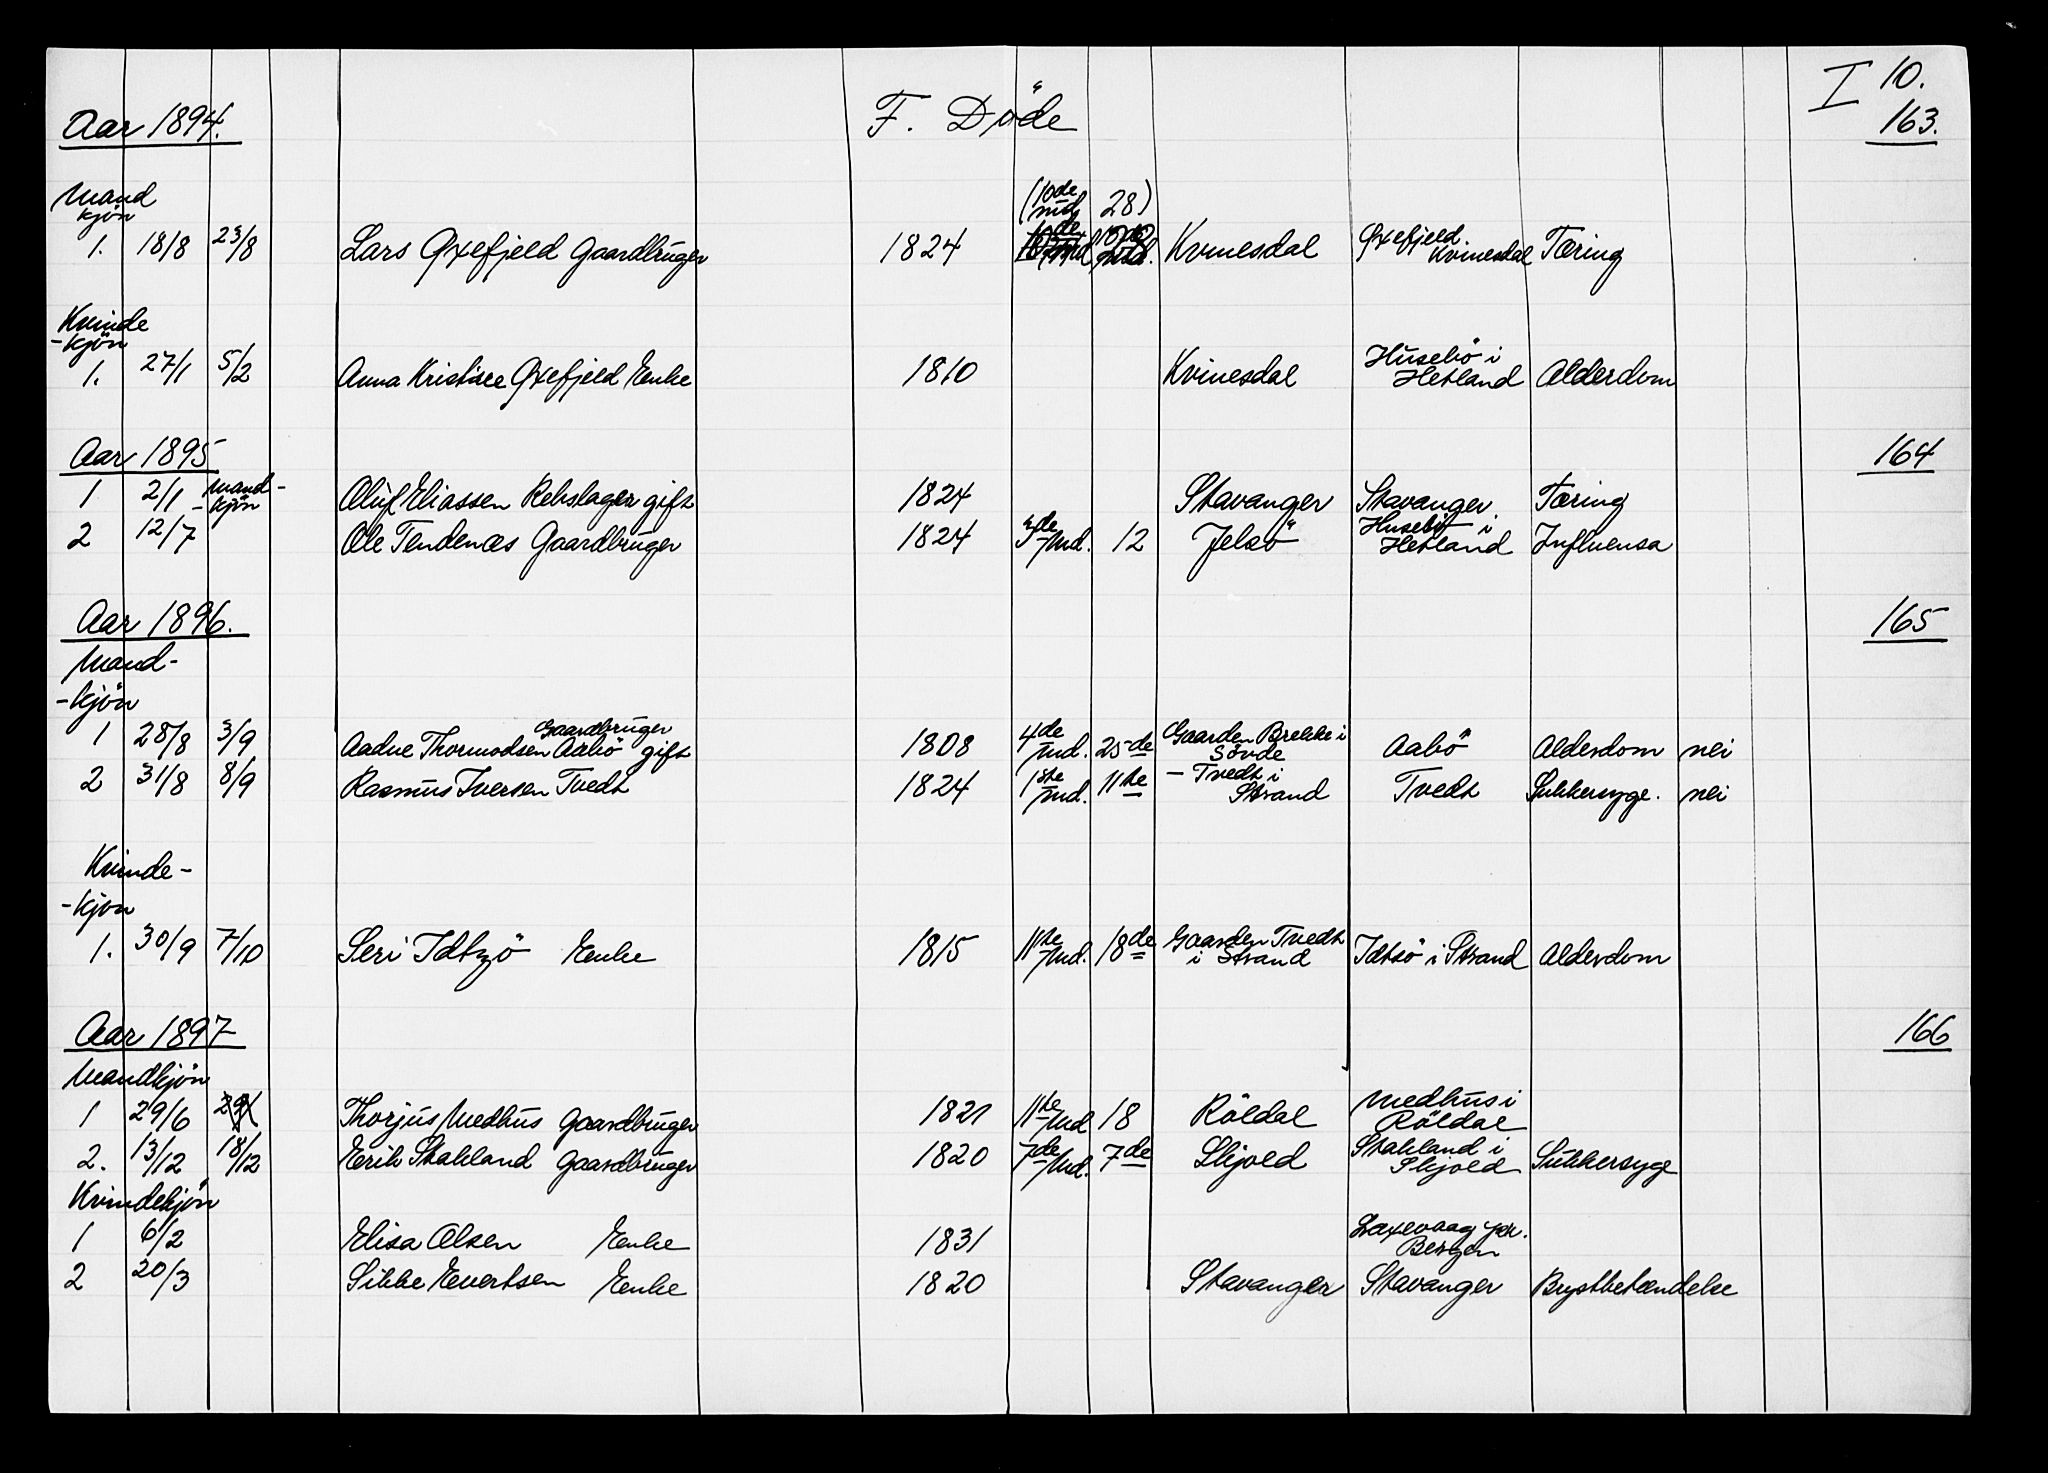 I 10.
Aar 1894. F. Döde 163.
Mand
kjön (10de Md 28)
1. 18/8 23/8 Lars Øxefjeld Gaardbruger 1824 Kvinesdal Øxefjeld Kvinesdal Tæring
Kvinde
-kjön
1. 27/1 5/2 Anna Kristine Øxefjeld Enke 1810 Kvinesdal Husebö i Hetland Alderdom
Aar 1895 164
1 2/1 Mand-kjön Oluf Eliassen Rebslager gift 1824 Stavanger Stavanger Tæring
2 12/7 Ole Tendenæs Gaardbruger 1824 3de Md. 12 Jelsö Husebö i Hetland Influensa
Aar 1896. 165
Mand-
-kjön
1 28/8 3/9 Aadne Thormodsen Aabö Gaardbruger gift 1808 4de Md. 25de Gaarden Brekke i Sövde Aabö Alderdom nei
2 31/8 8/9 Rasmus Iversen Tvedt 1824 1ste Md. 11te - Tvedt i Strand Tvedt Sukkersyge. nei
Kvinde-
-kjon
1. 30/9 7/10 Seri Idtzö Enke 1815 11te Md. 18de Gaarden Tvedt i Strand Idtsö i Strand Alderdom
Aar 1897 166
Mandkjön
1 29/6 Thorjus Medhus Gaardbruger 1821 11te Md 18 Röldal Medhus i Röldal
2. 13/12 18/12 Eerik Stakland Gaardbruger 1820 7de Md. 7de Skjold Stakland i Skjold Sukkersyge
Kvindekjön
1 6/2 Elisa Olsen Enke 1831 Laxevaag pr. Bergen
2 20/3 Sikke Evertsen Enke 1820 Stavanger Stavanger Brystbetændelse